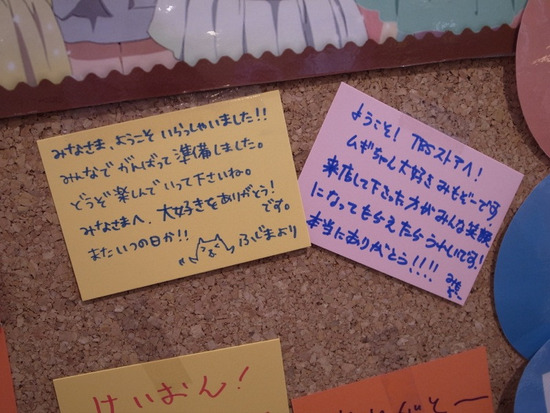 みなさま、ようこそいらっしゃいました!!
みんなでがんばって準備しました。
どうぞ楽しんでいって下さいね。
みなさまへ、大好きをありがとう!
です。
またいつの日か!!
ふじまより
ようこそ! TBSストアへ!
ムギちゃん大好きみもぞーです
来店して下さった方がみんな笑顔
になってもらえたらうれいです!
本当にありがとう!!!!
けいおん!